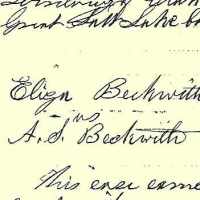 Great Salt Lake
Eliza Beckwith
vs
A. S. Beckwith
This case came